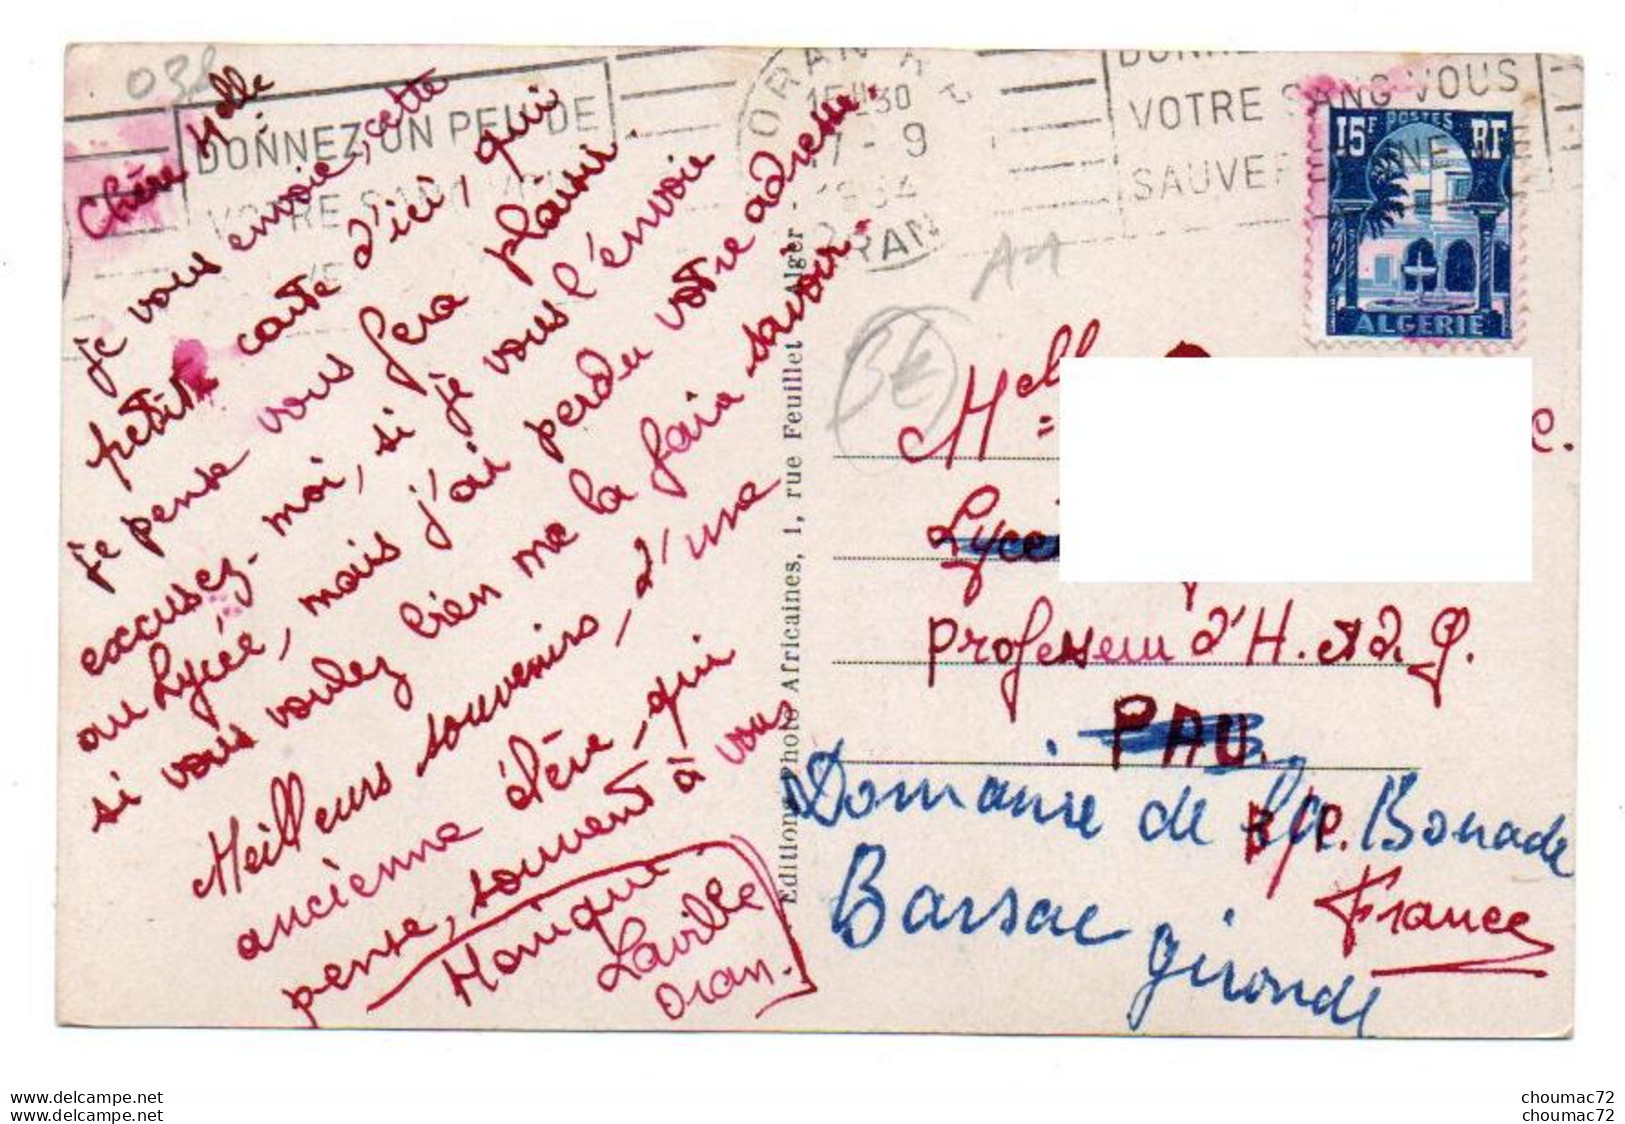 Chère Melle
je vous envoie, cette
petite carte d'ici, qui
je pense vous fera plaisir
excusez-moi, si je vous l'envoie
au Lycée, mais j'ai perdu votre adresse.
si vous voulez bien me la faire savoir.
Meilleurs souvenirs, d'une
ancienne élève, qui
pense, souvent à vous
Monique
Laville
Oran.
Editions Photo Africaines, 1, rue Feuillet Alger
DONNEZ UN PEU DE
VOTRE SANG
ORAN R.P
15H30
17 - 9
ORAN
VOTRE SANG VOUS
SAUVEREZ UNE VIE
15F POSTES RF
ALGERIE
A1
Melle
professeur d'H. et d. G.
PAU.
B/P.
France
Domaine de la Bouade
Barsac
gironde
choumac72
choumac72
choumac72
choumac72